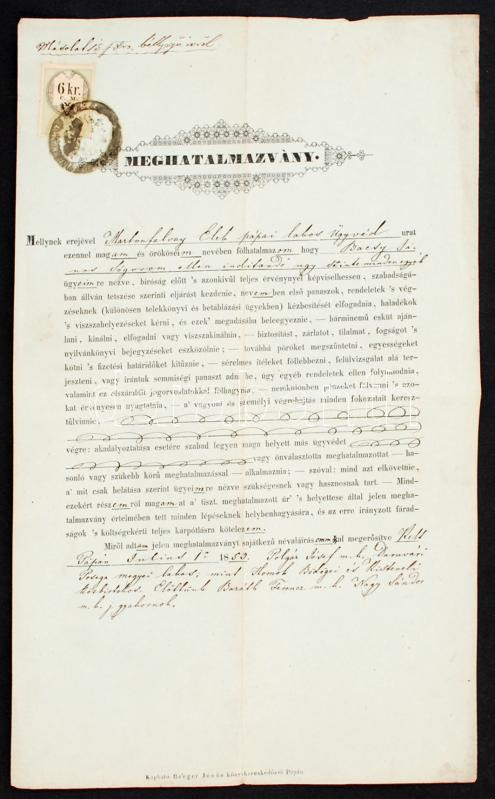 Másolat 15 f bélyegű ivről
6 kr.
C. M.
MEGHATALMAZVÁNY.
Mellynek erejével Martonfalvay Elek pápai lakos Ügyvéd urat
ezennel magam és örököseim nevében fölhatalmazom hogy Bacsy Já-
nos Sógorom ellen inditandó ugy
ügyeimre nézve, biróság előtt 's azonkivül teljes érvénynyel képviselhessen, szabadságá-
ban állván tetszése szerinti eljárást kezdenie, nevemben első panaszok, rendeletek 's vég-
zéseknek (különösen telekkönyvi és betáblázási ügyekben) kézbesitését elfogadnia, haladékok
's visszahelyezéseket kérni, és ezek' megadásába beleegyeznie, — bárminemű esküt ajan-
lani, kinálni, elfogadni vagy visszakinálnia, — biztositást, zárlatot, tilalmat, fogságot 's
nyilvánkönyvi bejegyzéseket eszközölnie; — továbbá póröket megszüntetni, egyességeket
kötni 's fizetési határidőket kitűznie, — sérelmes itéleket föllebbezni, felülvizsgálat alá ter-
jeszteni, vagy irántuk semmiségi panaszt adnibe, úgy egyéb rendeletek ellen folyamodnia,
valamint ez elszárolti jogorvoslatokkal fölhagynia, — nemkülönben pénzeket fölvenni 's azo-
kat érvényesen nyugtatnia, — a' vagyoni és személyi végrehajtás minden fokozatait keresz-
tülvinnie,
végre: akadályoztatása esetére szabad legyen maga helyett más ügyvédet
vagy önválasztotta meghatalmazottat — ha-
sonló vagy szűkebb körű meghatalmazással — alkalmaznia; — szóval: mind azt elkövetnie,
a' mit csak belátása szerint ügyeimre nézve szükségesnek vagy hasznosnak tart. — Mind-
ezekért részemről magamat a' tiszt. meghatalmazott úr' 's helyettese által jelen megha-
talmazvány értelmében tett minden lépéseknek helybenhagyására, és az erre irányzott fárad-
ságok 's költségekérti teljes kárpótlásra kötelezem.
Miről adtam jelen meghatalmazványt sajátkezű névaláírásommal megerősitve Kelt
Pápán Julius 1 1853. Polgár József m. k. Daruvári
Posega megyei lakos, mint Homok Bödögei és
közbirtokos. Előttünk Baráth Ferencz m. k. Nagy Sándor
m. k. j. gyakornok.
Kapható Berger Jónás könyvkereskedőnél Pápán.